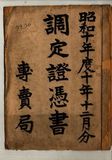 昭和十年度十年十二月分
調定證憑書
專賣局